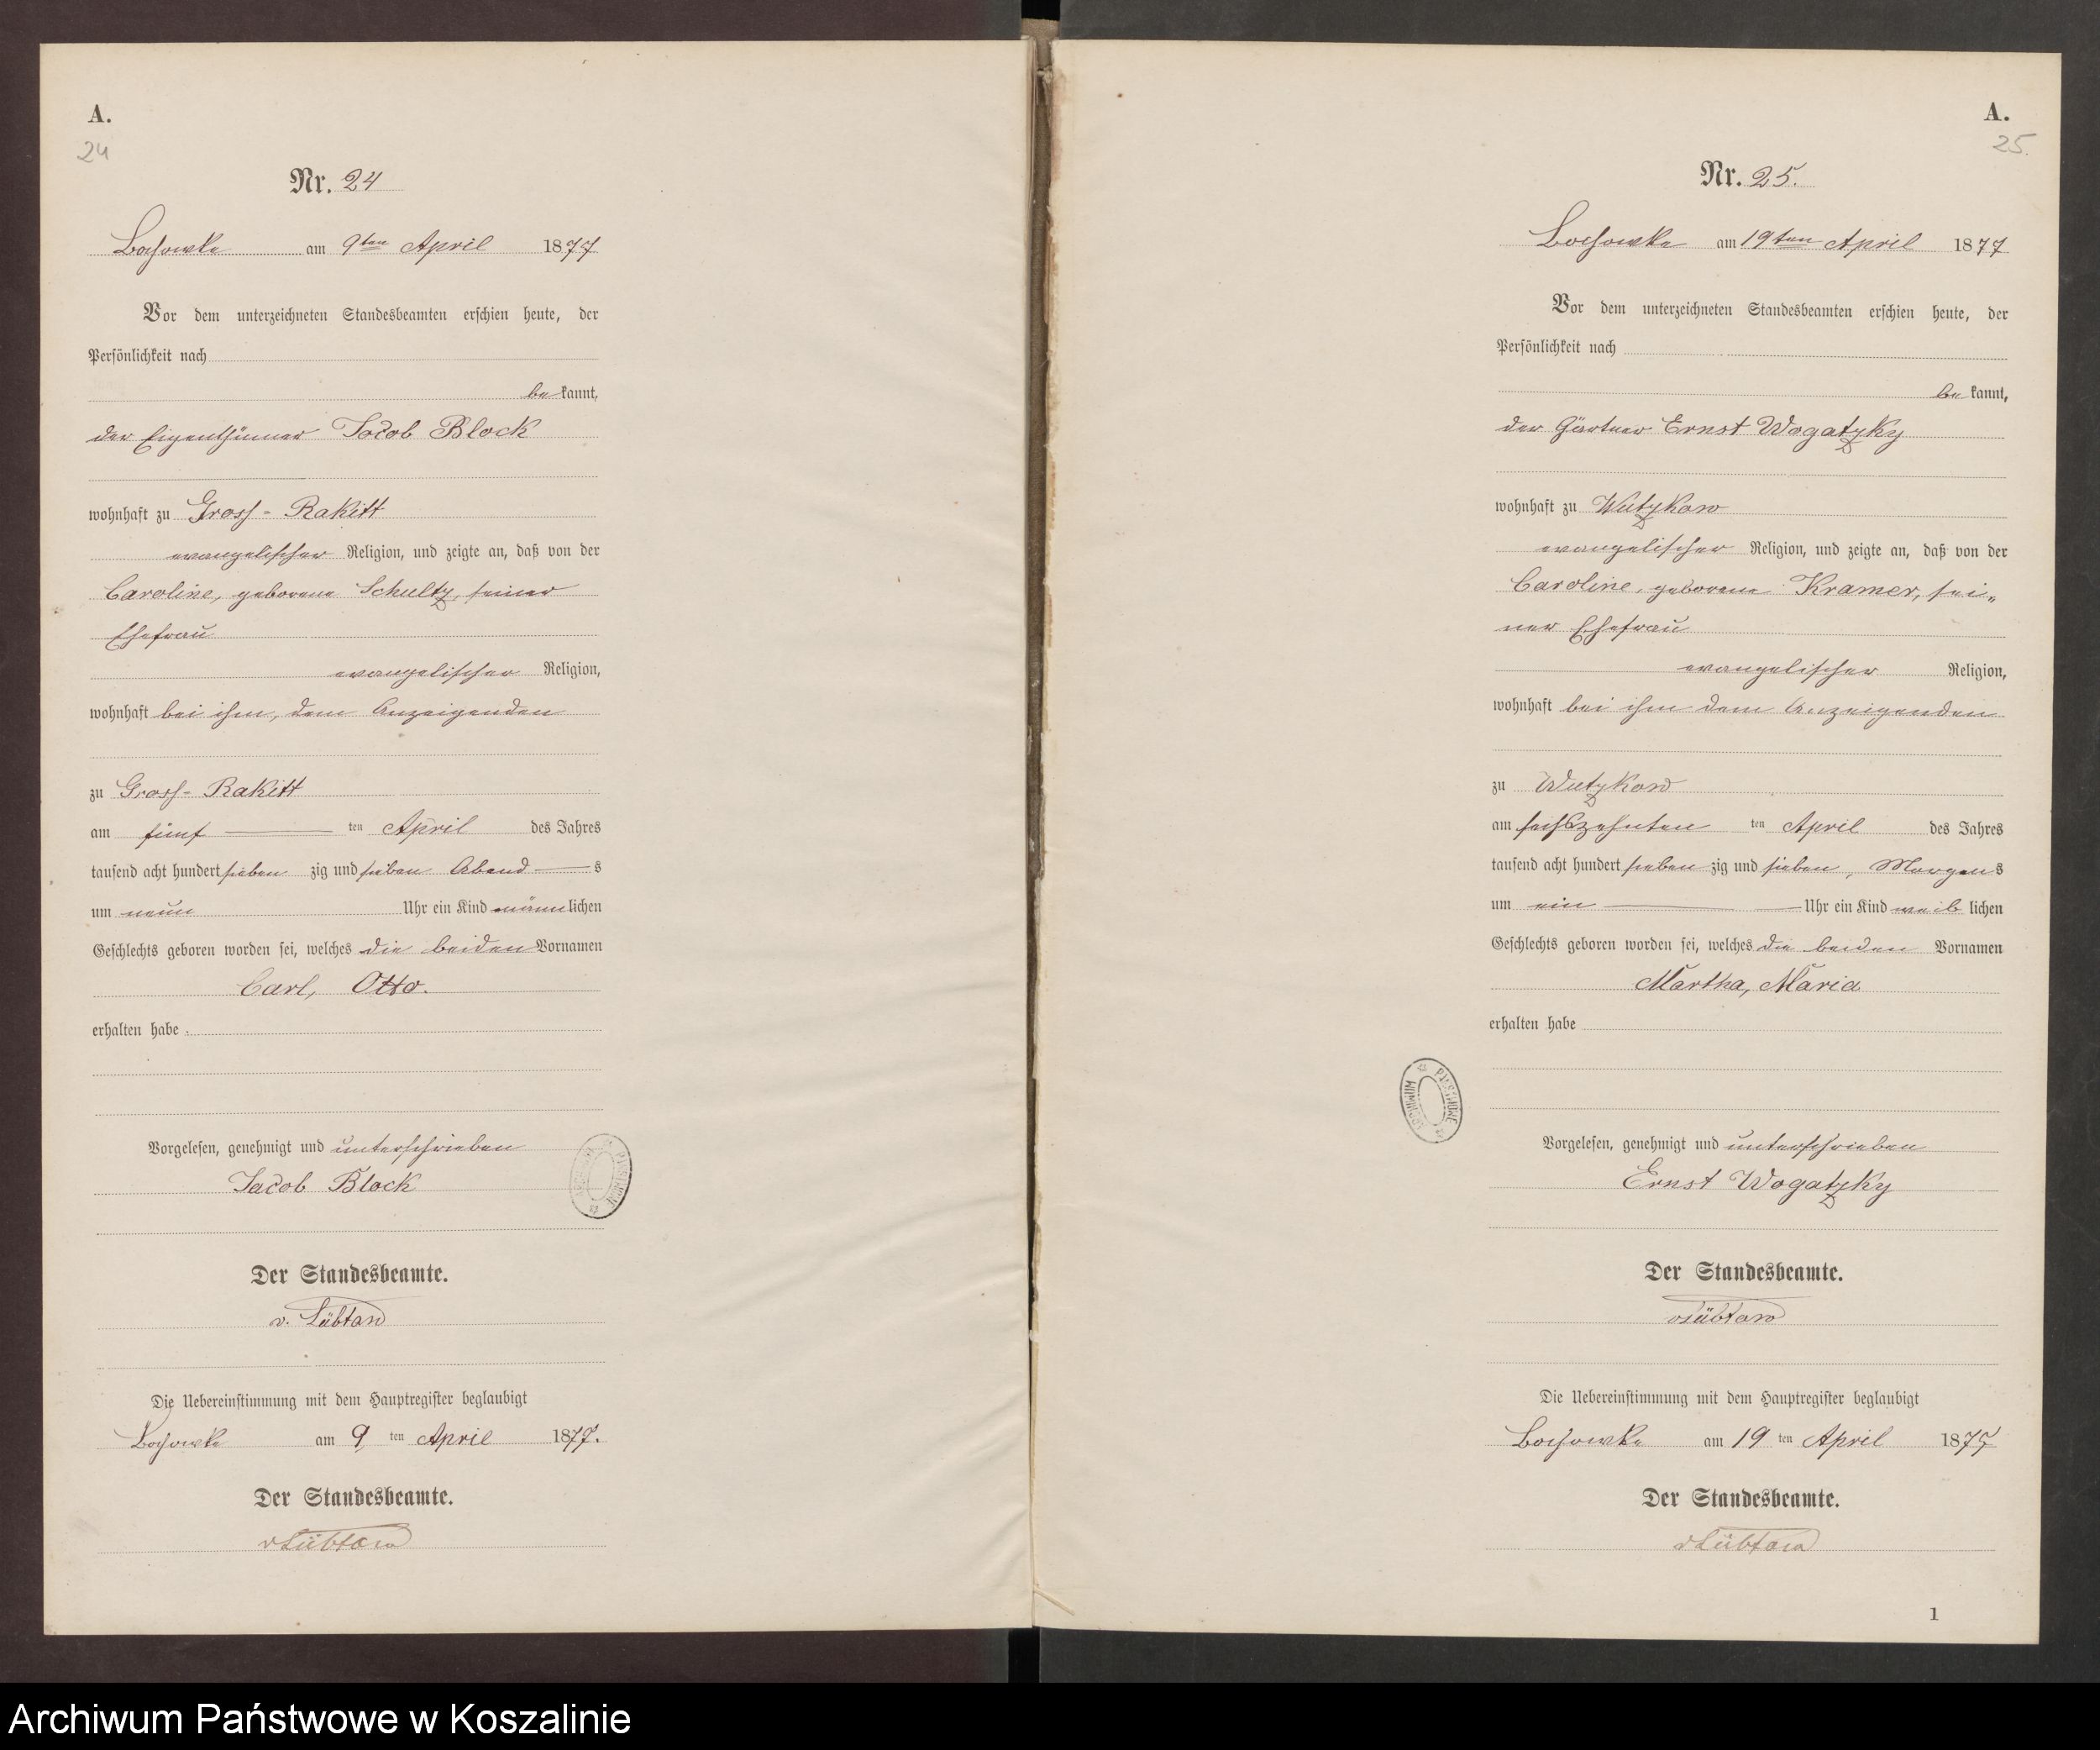 A.
24
Nr. 24
Bochowke am 9ten April 1877
Vor dem unterzeichneten Standesbeamten erschien heute, der
Persönlichkeit nach
bekannt,
der Eigenthümer Jacob Block
wohnhaft zu Gross-Rakitt
evangelischer Religion, und zeigte an, daß von der
Caroline, geborene Schultz, seiner
Ehefrau
evangelischer Religion,
wohnhaft bei ihm, dem Anzeigenden
zu Gross-Rakitt
am fünf ten April des Jahres
tausend acht hundert sieben zig und sieben Abend s
um neun Uhr ein Kind männlichen
Geschlechts geboren worden sei, welches die beiden Vornamen
Carl, Otto.
erhalten habe.
Vorgelesen, genehmigt und unterschrieben
Jacob Block
Der Standesbeamte.
v. Lübtow
Die Uebereinstimmung mit dem Hauptregister beglaubigt
Bochowke am 9 ten April 1877.
Der Standesbeamte.
vLübtow
A.
25.
Nr. 25.
Bochowke am 19ten April 1877
Vor dem unterzeichneten Standesbeamten erschien heute, der
Persönlichkeit nach
bekannt,
der Gärtner Ernst Wogatzky
wohnhaft zu Wutzkow
evangelischer Religion, und zeigte an, daß von der
Caroline, geborene Kramer, sei„
ner Ehefrau
evangelischer Religion,
wohnhaft bei ihm dem Anzeigenden
zu Wutzkow
am sechszehnten ten April des Jahres
tausend acht hundert sieben zig und sieben, Morgens
um ein Uhr ein Kind weib lichen
Geschlechts geboren worden sei, welches die beiden Vornamen
Martha, Maria
erhalten habe
ARCHIWUM PAŃSTWOWE
Vorgelesen, genehmigt und unterschrieben
Ernst Wogatzky
Der Standesbeamte.
vLübtow
Die Uebereinstimmung mit dem Hauptregister beglaubigt
Bochowke am 19 ten April 1877
Der Standesbeamte.
vLübtow
1
Archiwum Państwowe w Koszalinie